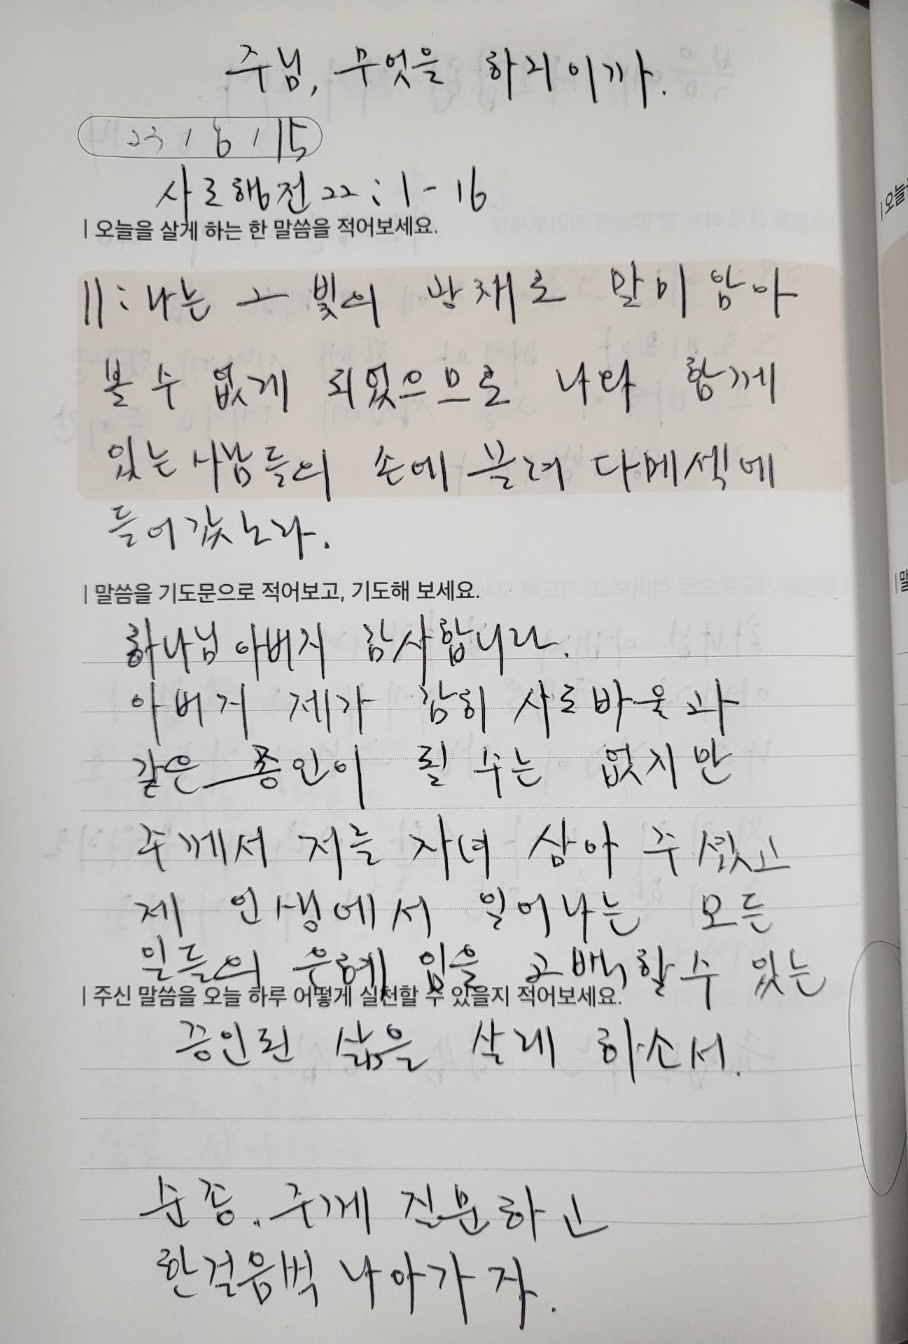 주님, 무엇을 하리이까.
23 / 6 / 15
사도행전 22 : 1 - 16
| 오늘을 살게 하는 한 말씀을 적어보세요.
11 : 나는 그 빛의 광채로 말미암아
볼 수 없게 되었으므로 나와 함께
있는 사람들의 손에 끌려 다메섹에
들어갔노라.
| 말씀을 기도문으로 적어보고, 기도해 보세요.
하나님 아버지 감사합니다.
아버지 제가 감히 사도바울과
같은 증인이 될 수는 없지만
주께서 저를 자녀 삼아 주셨고
제 인생에서 일어나는 모든
일들의 은혜 임을 고백할 수 있는
| 주신 말씀을 오늘 하루 어떻게 실천할 수 있을지 적어보세요.
증인된 삶을 살게 하소서.
순종. 주께 질문하고
한걸음씩 나아가자.